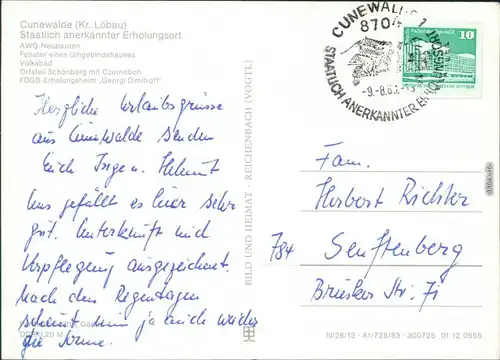 Cunewalde (Kr. Löbau)
Staatlich anerkannter Erholungsort
AWG-Neubauten
Fenster eines Umgebindehauses
Volksbad
Ortsteil Schönberg mit Czorneboh
FDGB-Erholungsheim „Georgi Dimitroff"
CUNEWALDE 1
870
-9.-8.8
STAATLICH ANERKANNTER
10
DDR
Herzliche Urlaubsgrüsse
aus Cunewalde senden
Euch Inge u. Helmut
Uns gefällt es hier sehr
gut. Unterkunft und
Verpflegung ausgezeichnet.
Nach den Regentagen
scheint nun ja auch wieder
die Sonne.
BILD UND HEIMAT · REICHENBACH (VOGTL)
Fam.
Herbert Richter
784 Senftenberg
Briesker Str. 71
III/26/13 · A1/725/83 · 300725 01 12 0555